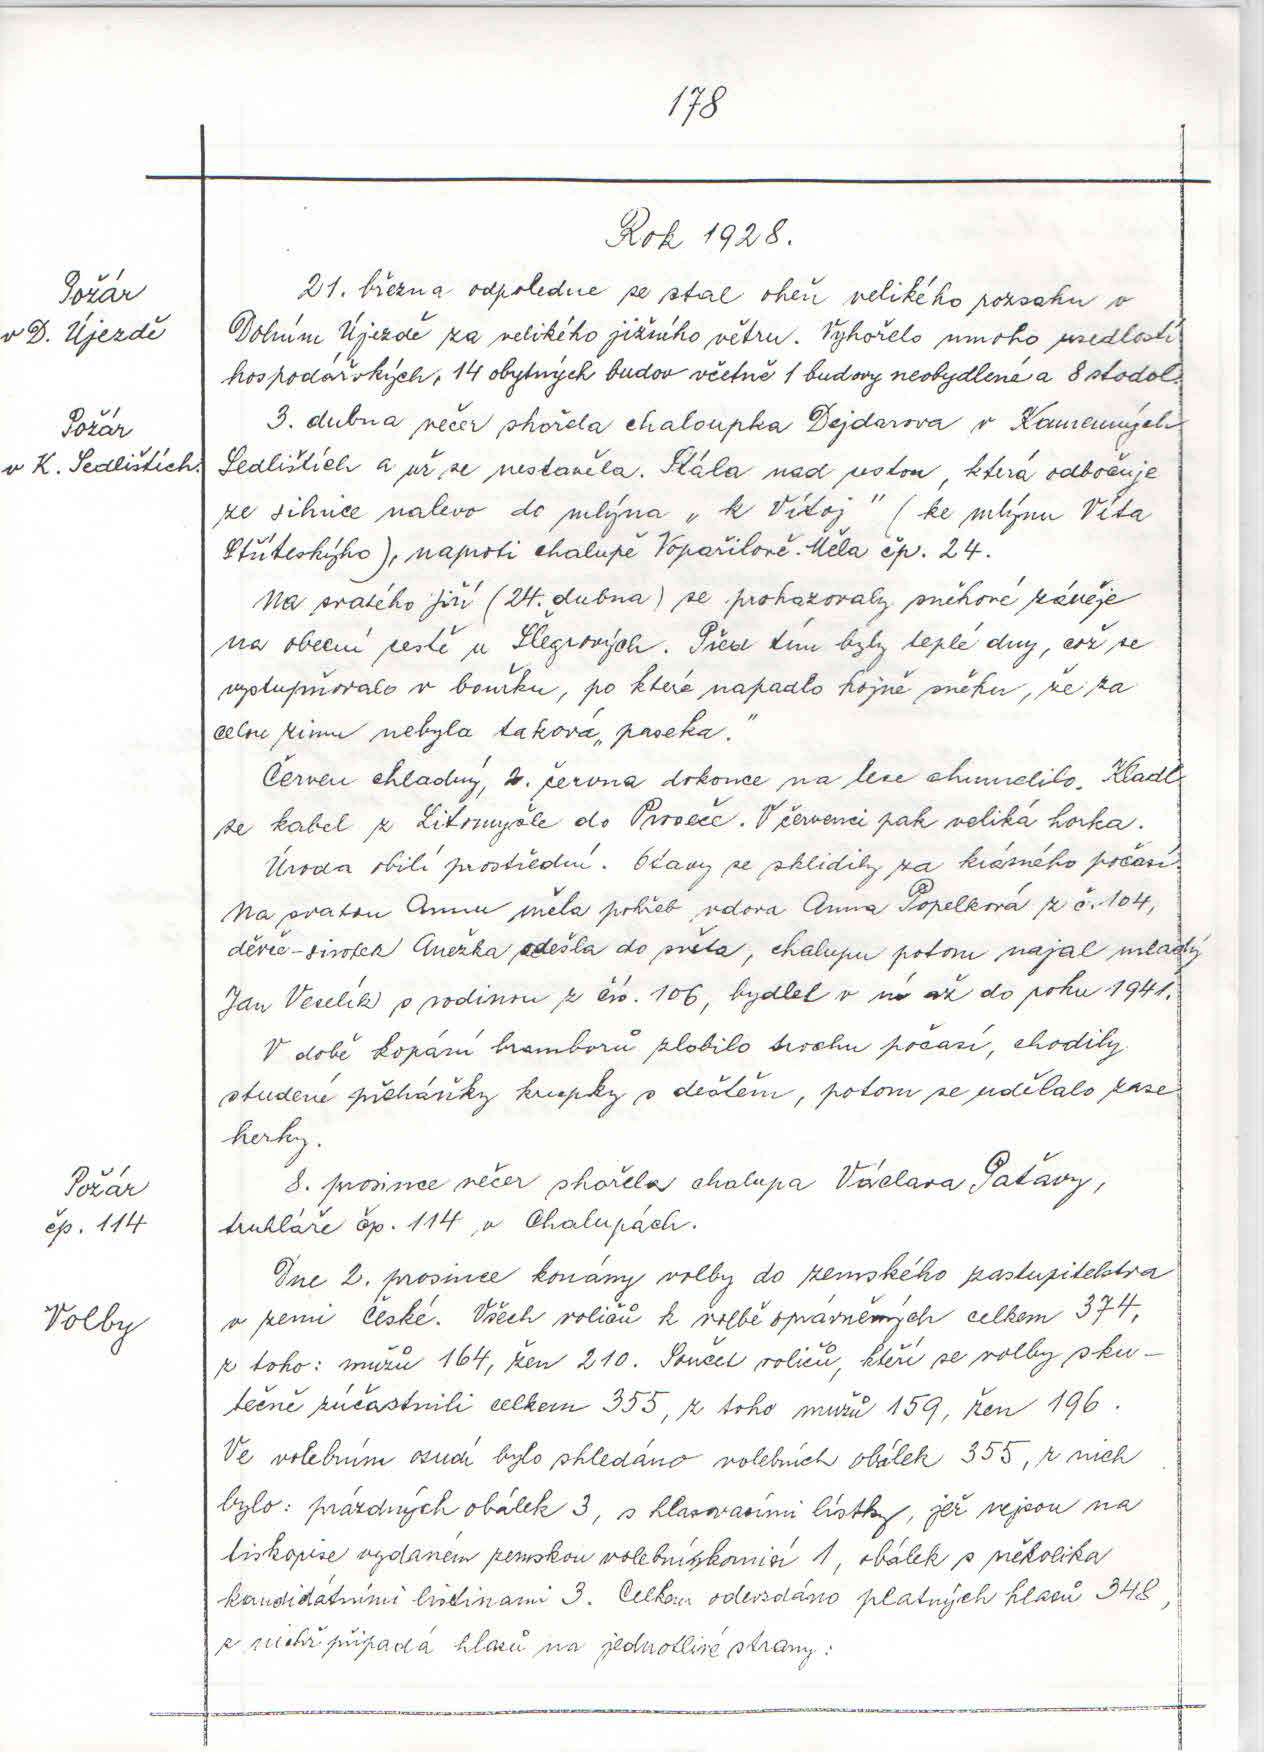 178
Rok 1928.
Požár
v D. Újezdě
21. března odpoledne se stal oheň velikého rozsahu v
Dolním Újezdě za velikého jižního větru. Vyhořelo mnoho usedlostí
hospodářských, 14 obytných budov včetně 1 budovy neobydlené a 8 stodol.
Požár
v K. Sedlištích.
3. dubna večer shořela chaloupka Dejdarova v Kamenných
Sedlištích a už se nestavěla. Stála nad cestou, která odbočuje
ze silnice nalevo do mlýna „k Vítoj" (ke mlýnu Víta
Stříteskýho), naproti chalupě Vopařilově. Měla čp. 24.
Na svatého Jiří (24. dubna) se prohazovaly sněhové závěje
na obecní cestě u Šlégrových. Před tím byly teplé dny, což se
vystupňovalo v bouřku, po které napadlo hojně sněhu, že za
celou zimu nebyla taková „paseka."
Červen chladný, 2. června dokonce na lese chumelilo. Kladl
se kabel z Litomyšle do Proseče. V červenci pak veliká horka.
Úroda obilí prostřední. Otavy se sklidily za krásného počasí.
Na svatou Annu měla pohřeb vdova Anna Popelková z č. 104,
děvče-sirotek Anežka odešla do světa, chalupu potom najal mladý
Jan Veselík s rodinou z čís. 106, bydlel v ní až do roku 1941.
V době kopání bramborů zlobilo trochu počasí, chodily
studené přeháňky krupky s deštěm, potom se udělalo zase
hezky.
Požár
čp. 114
8. prosince večer shořela chalupa Václava Patávy,
truhláře čp. 114 v Chalupách.
Volby
Dne 2. prosince konány volby do zemského zastupitelstva
v zemi České. Všech voličů k volbě oprávněných celkem 374,
z toho: mužů 164, žen 210. Součet voličů, kteří se volby sku-
tečně zúčastnili celkem 355, z toho mužů 159, žen 196.
Ve volebním osudí bylo shledáno volebních obálek 355, z nich
bylo: prázdných obálek 3, s hlasovacími lístky, jež nejsou na
tiskopise vydaném zemskou volební komisí 1, obálek s několika
kandidátními listinami 3. Celkem odevzdáno platných hlasů 348,
z nichž připadá hlasů na jednotlivé strany: